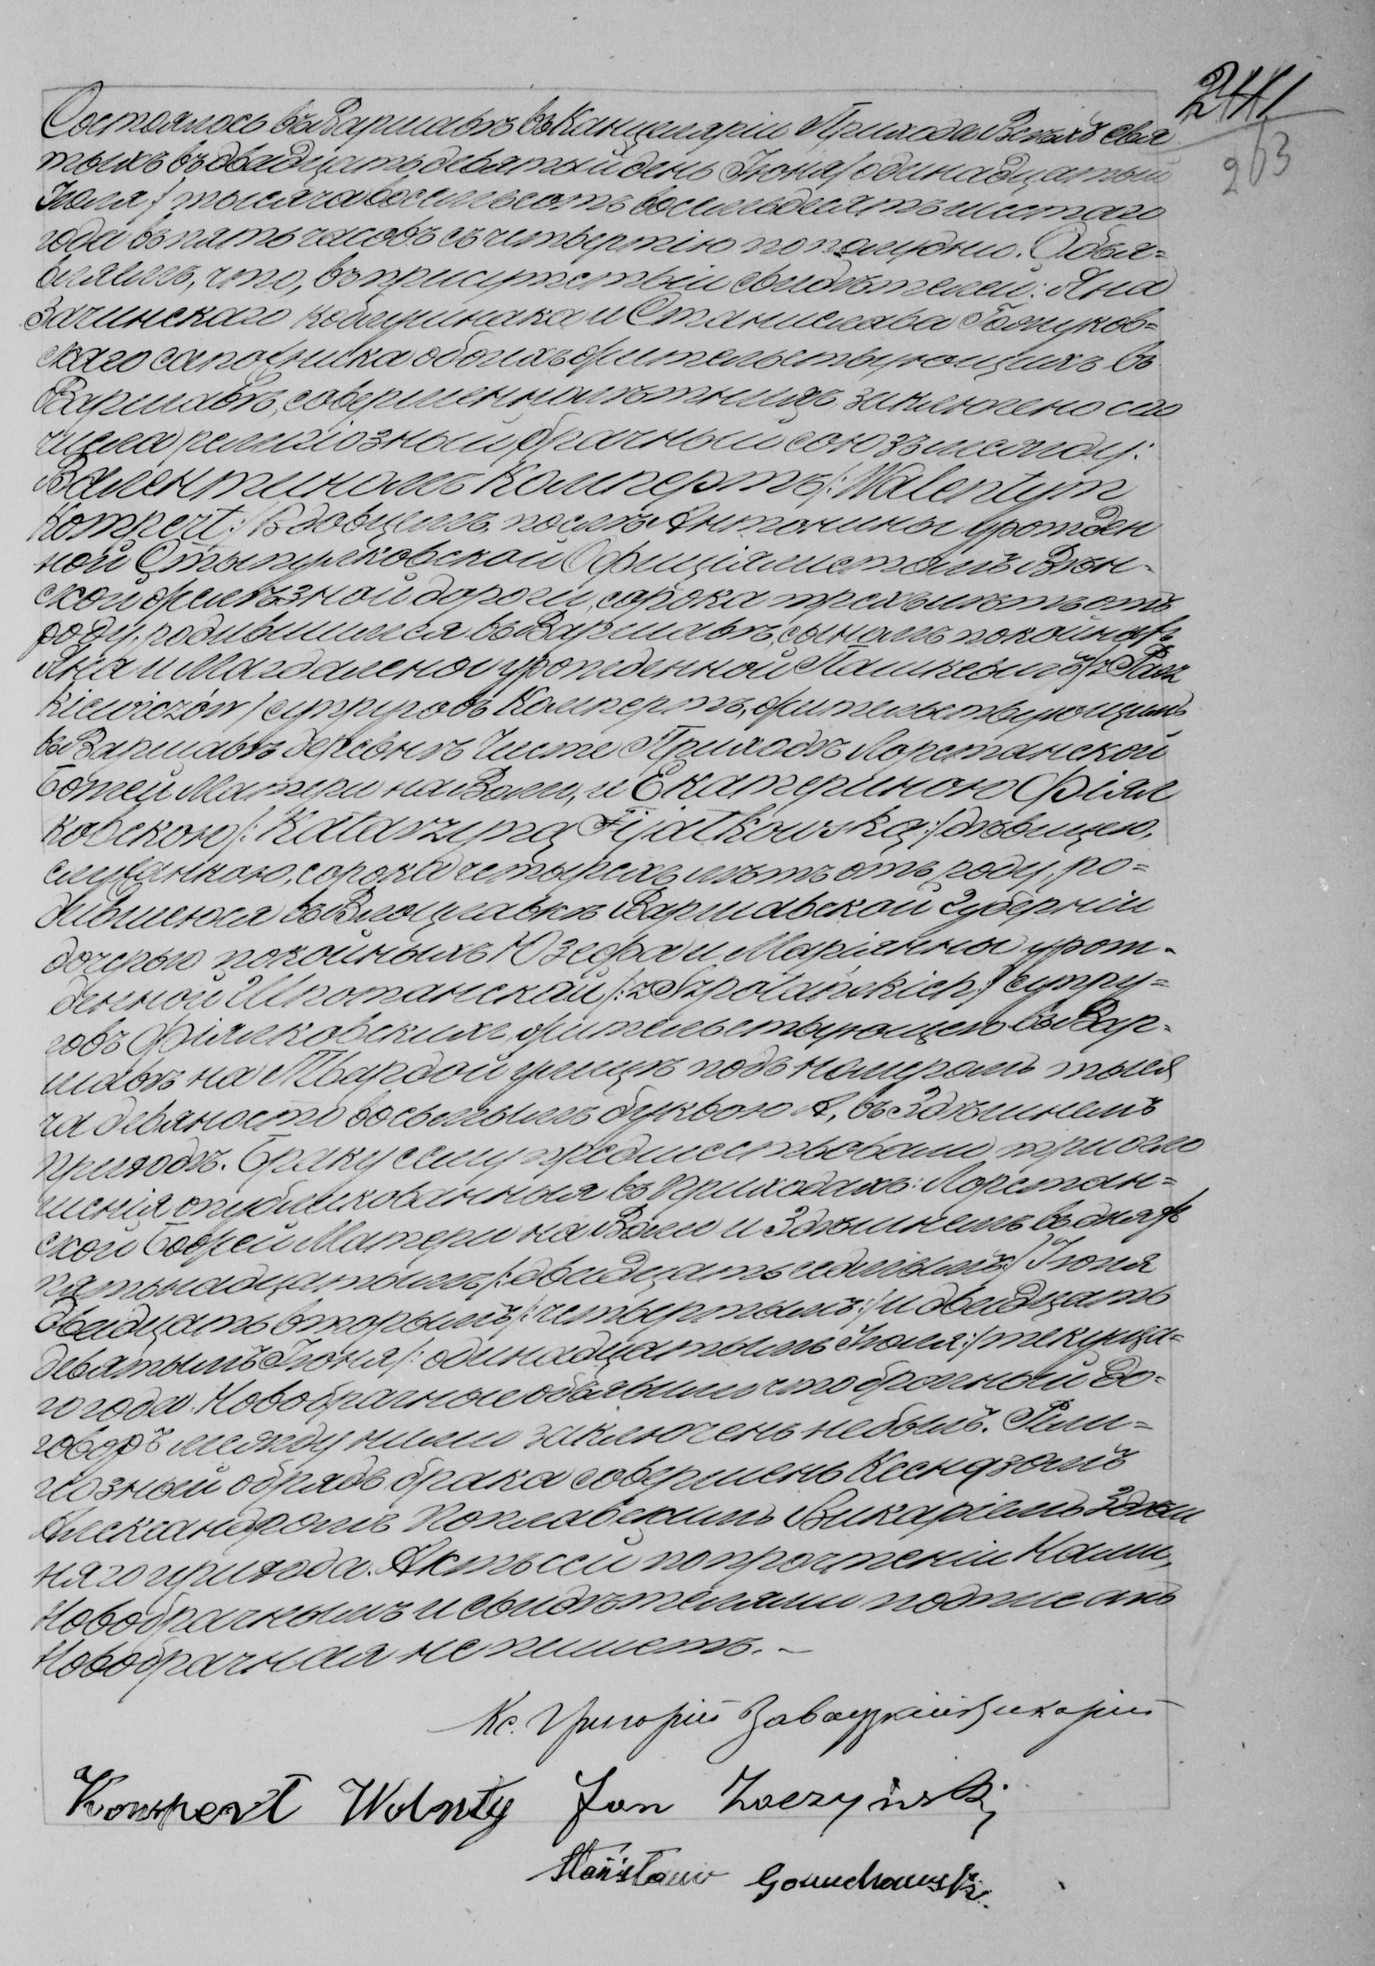 241
263
Состоялось въ Варшавѣ въ Канцеляріи Прихода Всѣхъ Свя
тыхъ въ двадцать девятый день Іюня /: одинадцатый
Іюля :/ тысяча восемьсотъ восемьдесятъ шестаго
года въ пять часовъ съ четвертію пополудни. Объя=
вляемъ, что, въ присутствіи свидѣтелей: Яна
Зачинскаго и Станислава
скаго сапожника обоихъ жительствующихъ въ
Варшавѣ, совершеннолѣтнихъ, заключено сего
числа религіозный брачный союзъ между:
Валентиномъ Компертъ /: Walentym
Kompert :/ вдовцемъ, послѣ Антонины урожден
ной Оффиціялистомъ Вѣн-
ской желѣзной дороги, сорока трехъ лѣтъ отъ
роду, родившимся въ Варшавѣ, сыномъ покойныхъ
Яна и Магдалены урожденной Пашкевичъ /: z Pasz
kiewiczów / супруговъ Компертъ, жительствующимъ
въ Варшавѣ деревнѣ Чисте Приходѣ Лоретанской
Божей Матери на Воли, и Екатериною Фіял
ковскою /: Katarzyną Fijałkowską :/ дѣвицею,
служанкою, сорока четырехъ лѣтъ отъ роду, ро=
дившеюся въ Влоцлавкѣ Варшавской Губерніи
дочерью покойныхъ Юзефа и Маріянны урож-
денной Шпотанской /: z Szpotańskich :/ супру=
говъ Фіялковскихъ, жительствующею въ Вар-
шавѣ на Твардой улицѣ подъ номеромъ тыся
ча девяносто восьмымъ буквою А, въ Здѣшнемъ
приходѣ. Браку сему предшествовали три огло
шенія опубликованныя въ Приходахъ: Лоретан=
ской Божей Матери на Воли и Здѣшнемъ въ дняхъ
пятьнадцатымъ /: двадцать седьмымъ :/ Іюня
двадцать вторымъ /: четвертымъ :/ и двадцать
девятымъ Іюня /: одинадцатымъ Іюля :/ текуща=
го года. Новобрачные объявили что брачный до-
говоръ между ними заключенъ не былъ. Рели=
гіозный обрядъ брака совершенъ Ксендзомъ
Александромъ Поплавскимъ Викаріемъ Здѣш
няго прихода. Актъ сей по прочтеніи Нами,
Новобрачнымъ и свидѣтелями подписанъ
Новобрачная не пишетъ. –
Кс. Григорій Завадзкій Викарій
Kompert Wolnty Jan Zaczyński
Stanisław